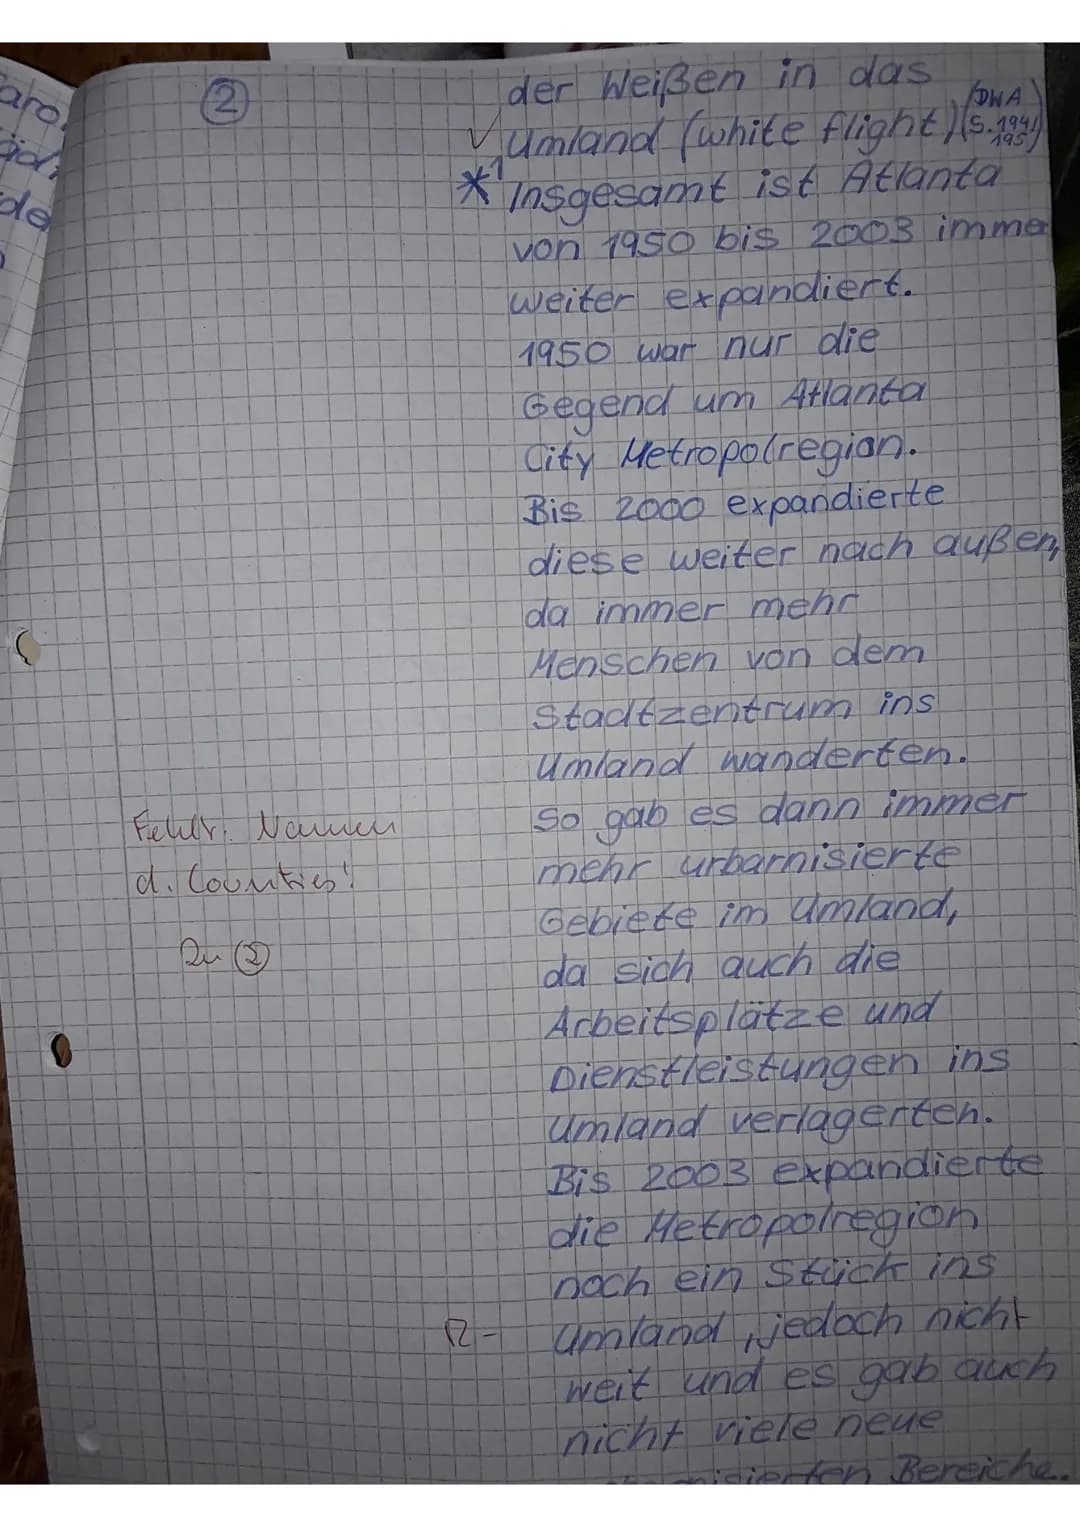 ②
der Weißen in das
Umland (white flight) (DWA S. 194/195)
*1 Insgesamt ist Atlanta
von 1950 bis 2003 imme
weiter expandiert.
1950 war nur die
Gegend um Atlanta
City Metropolregion.
Bis 2000 expandierte
diese weiter nach außen,
da immer mehr
Menschen von dem
Stadtzentrum ins
Umland wanderten.
So gab es dann immer
mehr urbarnisierte
Gebiete im Umland,
da sich auch die
Arbeitsplätze und
Dienstleistungen ins
Umland verlagerten.
Bis 2003 expandierte
die Metropolregion
noch ein Stück ins
Umland, jedoch nicht
weit und es gab auch
nicht viele neue
Bereiche.
Fehlt: Namen
d. Counties!
Zu ②